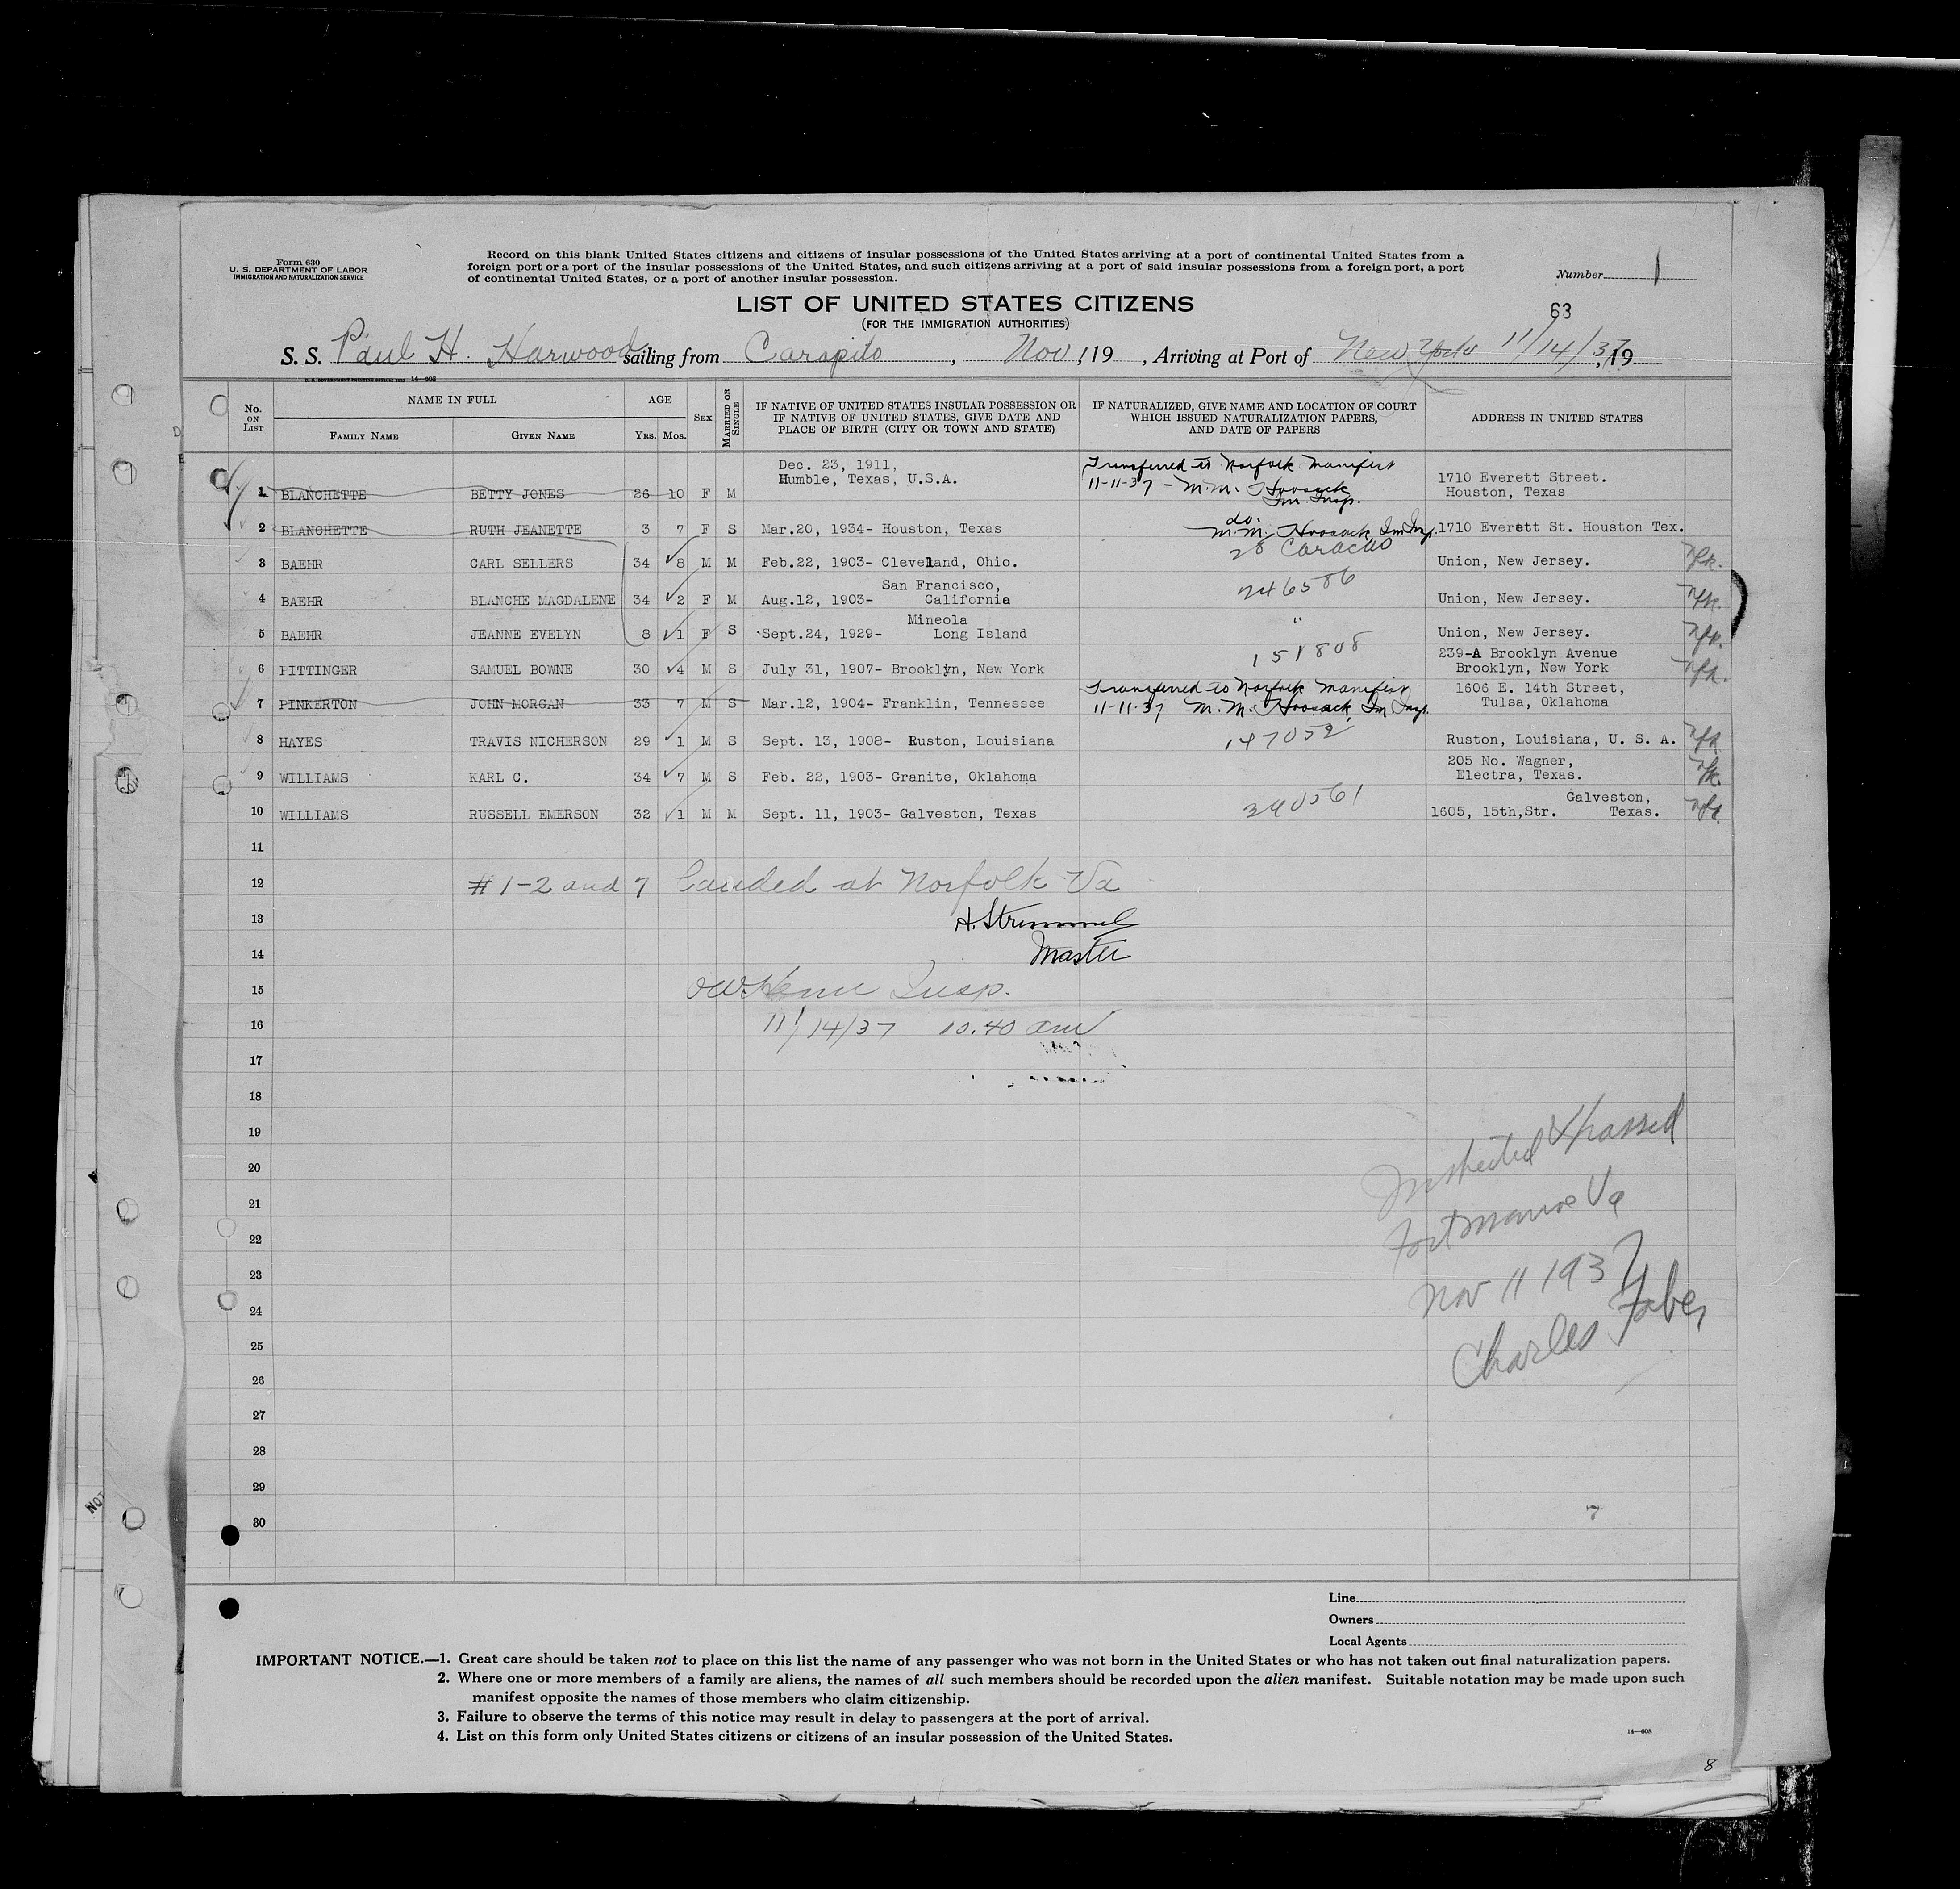 Form 630
U. S. DEPARTMENT OF LABOR
IMMIGRATION AND NATURALIZATION SERVICE
Record on this blank United States citizens and citizens of insular possessions of the United States arriving at a port of continental United States from a
foreign port or a port of the insular possessions of the United States, and such citizens arriving at a port of said insular possessions from a foreign port, a port
of continental United States, or a port of another insular possession.
Number 1
LIST OF UNITED STATES CITIZENS
(FOR THE IMMIGRATION AUTHORITIES)
63
S. S. Paul H. Harwood sailing from Caripito, Nov, 19 , Arriving at Port of New York 11/14/37, 19
U. S. GOVERNMENT PRINTING OFFICE 14—608
No. ON LIST
NAME IN FULL
FAMILY NAME
GIVEN NAME
AGE
YRS. MOS.
SEX
MARRIED OR SINGLE
IF NATIVE OF UNITED STATES INSULAR POSSESSION OR
IF NATIVE OF UNITED STATES, GIVE DATE AND
PLACE OF BIRTH (CITY OR TOWN AND STATE)
IF NATURALIZED, GIVE NAME AND LOCATION OF COURT
WHICH ISSUED NATURALIZATION PAPERS,
AND DATE OF PAPERS
ADDRESS IN UNITED STATES
Dec. 23, 1911, Transferred to Norfolk Manifest
Humble, Texas, U.S.A. 11-11-37 - M.M. 1710 Everett Street.
1 BLANCHETTE BETTY JONES 26 10 F M Im. Insp. Houston, Texas
do.
2 BLANCHETTE RUTH JEANETTE 3 7 F S Mar.20, 1934- Houston, Texas M.M. Im Insp. 1710 Everett St. Houston Tex.
3 BAEHR CARL SELLERS 34 8 M M Feb.22, 1903- Cleveland, Ohio. Union, New Jersey. Nfk.
San Francisco,
4 BAEHR BLANCHE MAGDALENE 34 2 F M Aug.12, 1903- California 246586 Union, New Jersey. Nfk.
Mineola
5 BAEHR JEANNE EVELYN 8 1 F S Sept.24, 1929- Long Island " Union, New Jersey. Nfk.
239-A Brooklyn Avenue
6 PITTINGER SAMUEL BOWNE 30 4 M S July 31, 1907- Brooklyn, New York 151808 Brooklyn, New York Nfk.
Transferred to Norfolk Manifest 1606 E. 14th Street,
7 PINKERTON JOHN MORGAN 33 7 M S Mar.12, 1904- Franklin, Tennessee 11-11-37 M. M. Im Insp. Tulsa, Oklahoma
8 HAYES TRAVIS NICHERSON 29 1 M S Sept. 13, 1908- Ruston, Louisiana 147052 Ruston, Louisiana, U. S. A. Nfk
205 No. Wagner,
9 WILLIAMS KARL C. 34 7 M S Feb. 22, 1903- Granite, Oklahoma Electra, Texas. Nfk.
Galveston,
10 WILLIAMS RUSSELL EMERSON 32 1 M M Sept. 11, 1903- Galveston, Texas 1605, 15th,Str. Texas. Nfk.
11
12 # 1-2 and 7 landed at Norfolk Va
13
14 Master
15 Insp.
16 11/14/37 10.40 am
17
18
19 Inspected & passed
20
21 Fort Monroe Va
22
23 Nov 11 1937
24
25 Charles Faber
26
27
28
29
7
30
Line
Owners
Local Agents
IMPORTANT NOTICE.—1. Great care should be taken not to place on this list the name of any passenger who was not born in the United States or who has not taken out final naturalization papers.
2. Where one or more members of a family are aliens, the names of all such members should be recorded upon the alien manifest. Suitable notation may be made upon such
manifest opposite the names of those members who claim citizenship.
3. Failure to observe the terms of this notice may result in delay to passengers at the port of arrival.
4. List on this form only United States citizens or citizens of an insular possession of the United States.
14—608
8